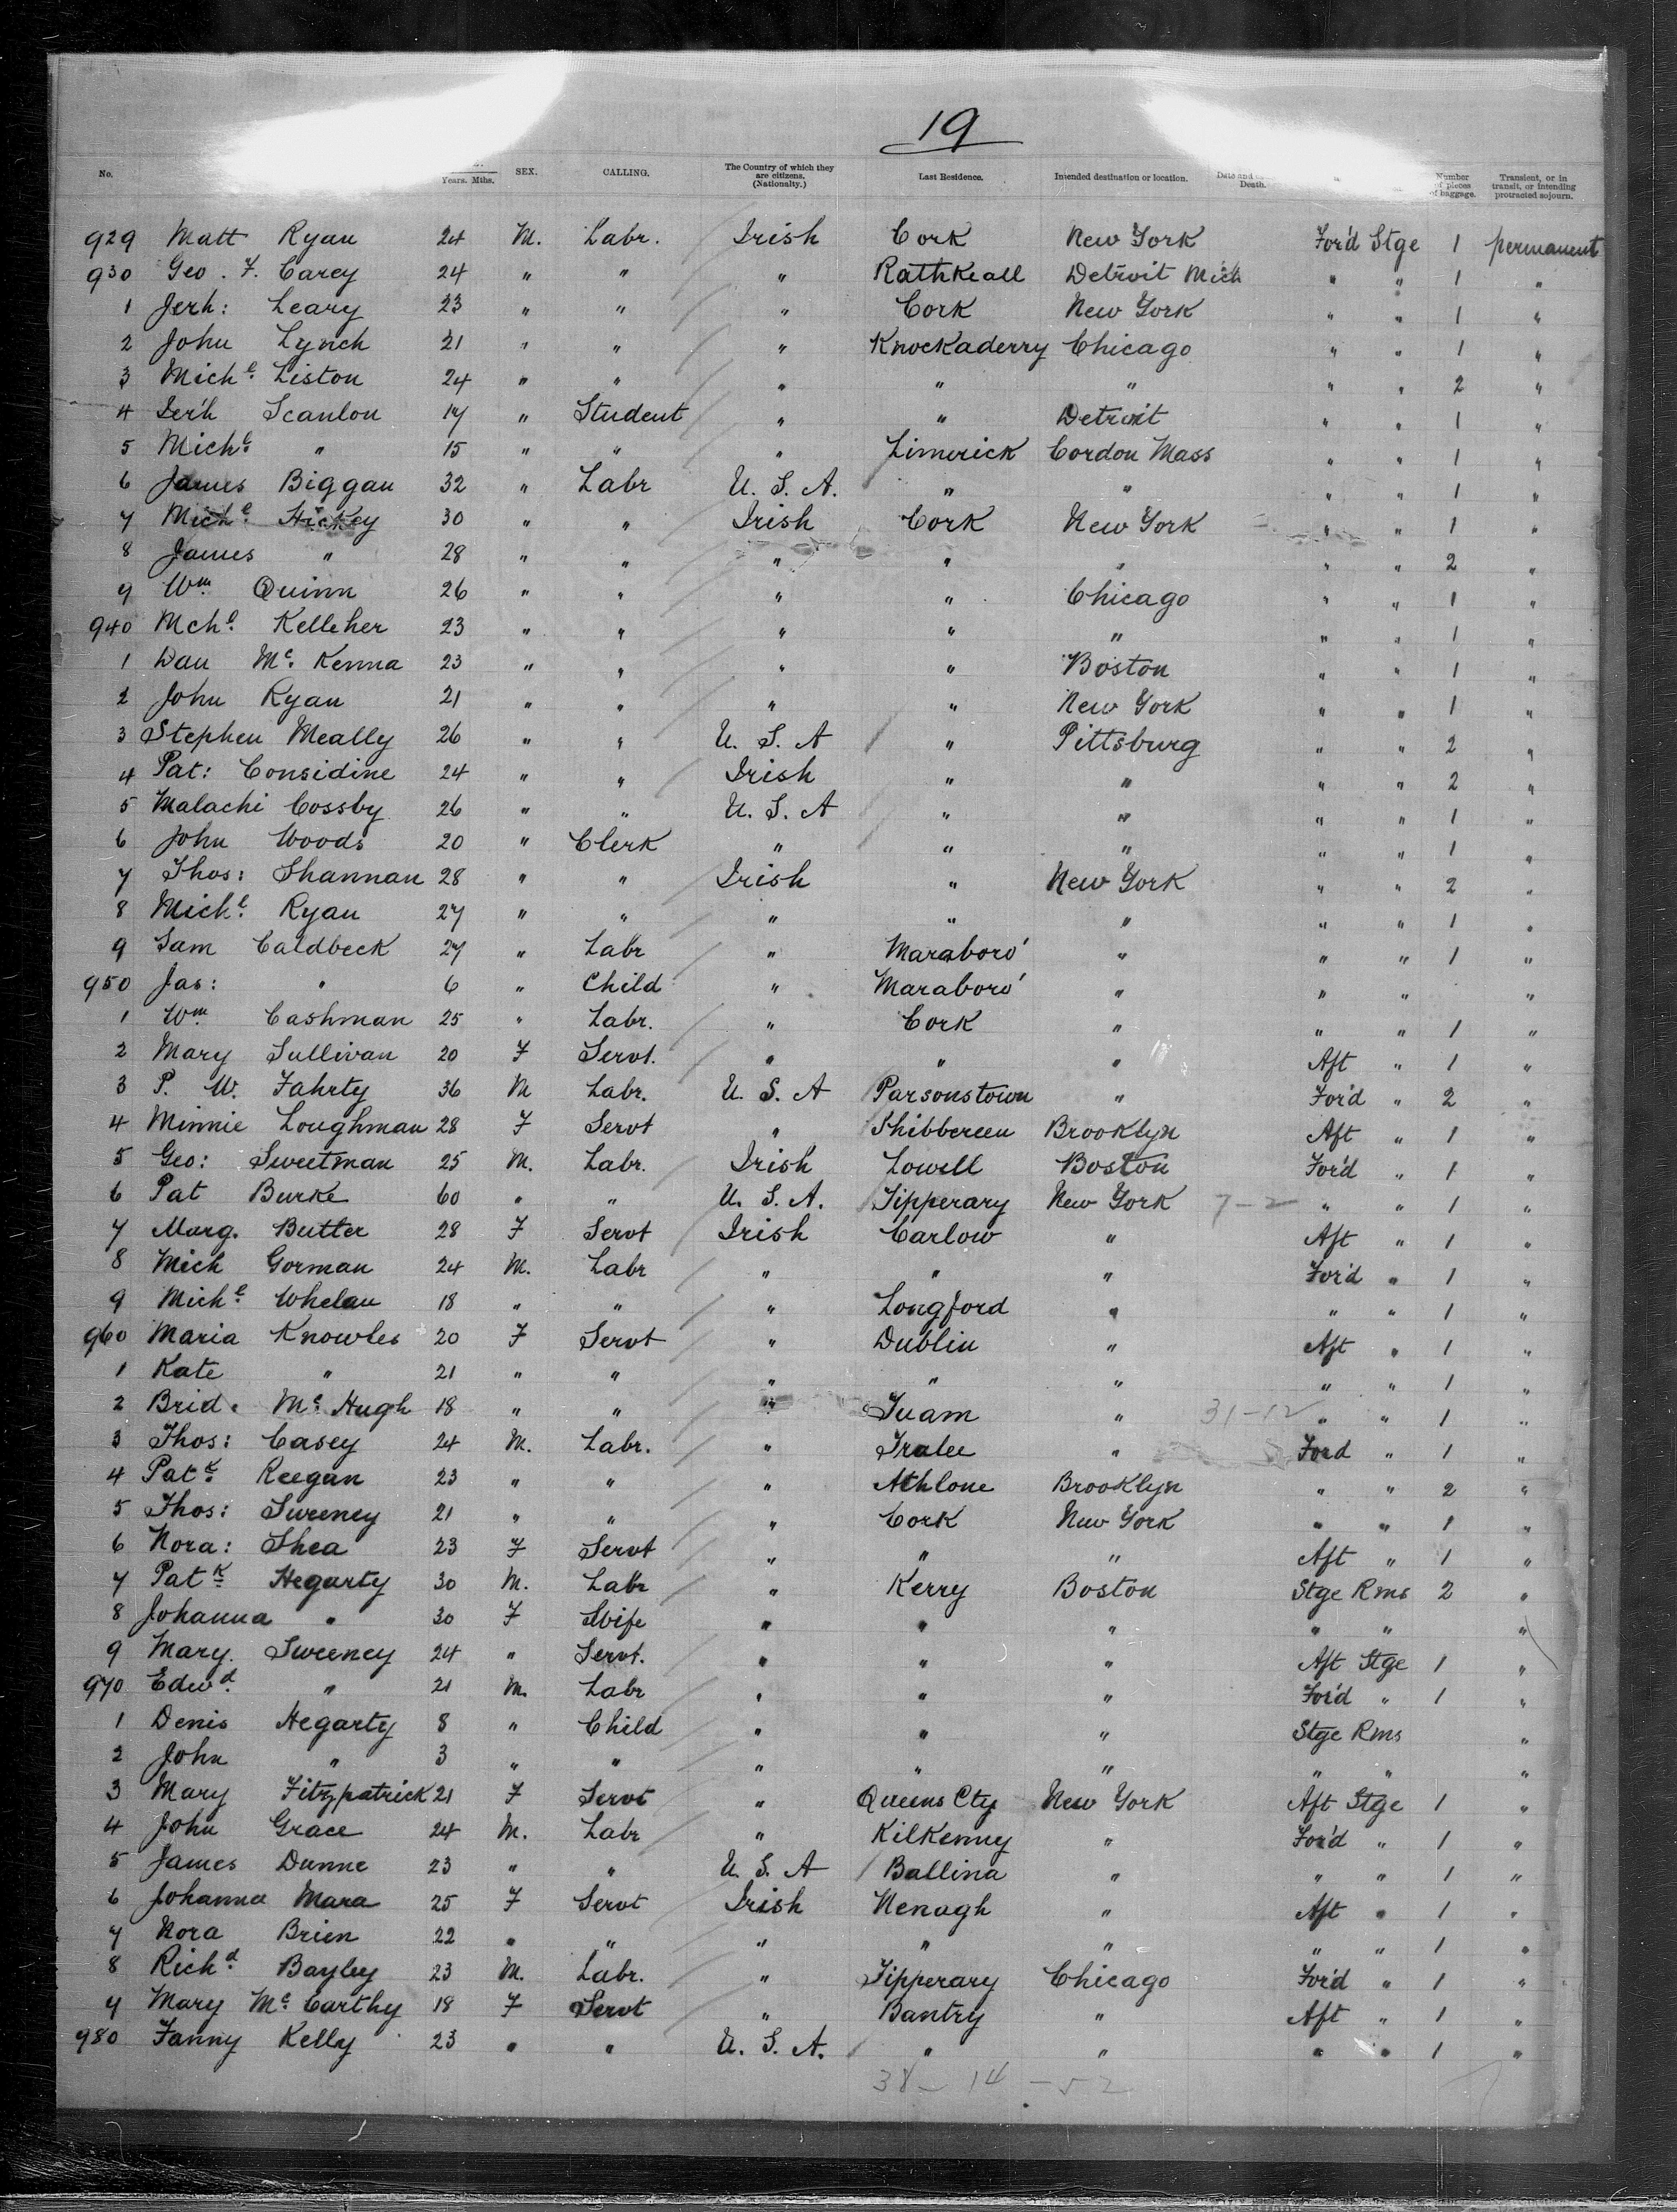 19
No. Years. Mths. SEX. CALLING. The Country of which they are citizens. (Nationality.) Last Residence. Intended destination or location. Date and Death. Number of pieces of baggage. Transient, or in transit, or intending protracted sojourn.
929 Matt Ryan 24 M. Labr. Irish Cork New York For'd Stge 1 permanent
930 Geo. F. Carey 24 " " " Rathkeall Detroit Mich " " 1 "
1 Jerh: Leary 23 " " " Cork New York " " 1 "
2 John Lynch 21 " " " Knockaderry Chicago " " 1 "
3 Michl. Liston 24 " " " " " " " 2 "
4 Jer'h Scanlon 17 " Student " " Detroit " " 1 "
5 Michl. " 15 " " " Limerick Cordon Mass " " 1 "
6 James Biggan 32 " Labr U. S. A. " " " " 1 "
7 Michl. Hickey 30 " " Irish Cork New York " " 1 "
8 James " 28 " " " " " " " 2 "
9 Wm. Quinn 26 " " " " Chicago " " 1 "
940 Mchl. Kelleher 23 " " " " " " " 1 "
1 Dan Mc. Kenna 23 " " " " Boston " " 1 "
2 John Ryan 21 " " " " New York " " 1 "
3 Stephen Meally 26 " " U. S. A " Pittsburg " " 2 "
4 Pat: Considine 24 " " Irish " " " " 2 "
5 Malachi Cossby 26 " " U. S. A " " " " 1 "
6 John Woods 20 " Clerk " " " " " 1 "
7 Thos: Shannan 28 " " Irish " New York " " 2 "
8 Michl. Ryan 27 " " " " " " " 1 "
9 Sam Caldbeck 27 " Labr " Maraboro' " " " 1 "
950 Jas: " 6 " Child " Maraboro' " " " "
1 Wm. Cashman 25 " Labr. " Cork " " " 1 "
2 Mary Sullivan 20 F Servt. " " " Aft " 1 "
3 P. W. Fahrty 36 M Labr. U. S. A Parsonstown " For'd " 2 "
4 Minnie Loughman 28 F Servt " Skibbereen Brooklyn Aft " 1 "
5 Geo: Sweetman 25 M. Labr. Irish Lowell Boston For'd " 1 "
6 Pat Burke 60 " " U. S. A. Tipperary New York 7-2 " " 1 "
7 Marg. Butler 28 F Servt Irish Carlow " Aft " 1 "
8 Mich Gorman 24 M. Labr " " " For'd " 1 "
9 Michl. Whelan 18 " " " Longford " " " 1 "
960 Maria Knowles 20 F Servt " Dublin " Aft " 1 "
1 Kate " 21 " " " " " " " 1 "
2 Brid. Mc. Hugh 18 " " " Tuam " 31-12 " " 1 "
3 Thos: Casey 24 M. Labr. " Tralee " Ford " 1 "
4 Patk. Reegan 23 " " " Athlone Brooklyn " " 2 "
5 Thos: Sweeney 21 " " " Cork New York " " 1 "
6 Nora: Shea 23 F Servt " " " Aft " 1 "
7 Patk Hegarty 30 M. Labr " Kerry Boston Stge Rms 2 "
8 Johanna " 30 F Wife " " " " " "
9 Mary. Sweeney 24 " Servt. " " " Aft Stge 1 "
970 Edwd. " 21 M. Labr " " " For'd " 1 "
1 Denis Hegarty 8 " Child " " " Stge Rms "
2 John " 3 " " " " " " " "
3 Mary Fitzpatrick 21 F Servt " Queens Cty New York Aft Stge 1 "
4 John Grace 24 M. Labr " Kilkenny " For'd " 1 "
5 James Dunne 23 " " U. S. A Ballina " " " 1 "
6 Johanna Mara 25 F Servt Irish Nenagh " Aft " 1 "
7 Nora Brien 22 " " " " " " " 1 "
8 Richd. Bayley 23 M. Labr. " Tipperary Chicago For'd " 1 "
9 Mary Mc. Carthy 18 F Servt " Bantry " Aft " 1 "
980 Fanny Kelly 23 " " U. S. A. " " " " 1 "
38-14-52